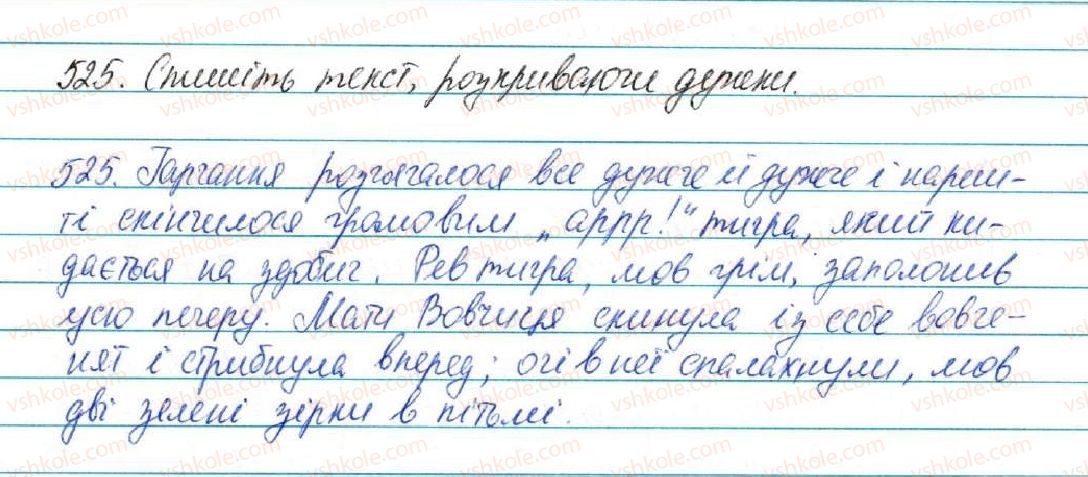 525. Спишіть текст, розкриваючи дужки.
525. Гарчання розлягалося все дужче й дужче і нареш-
ті скінчилося громовим „аррр!“ тигра, який ки-
дається на здобич. Рев тигра, мов грім, заполонив
усю печеру. Мати Вовчиця скинула із себе вовче-
нят і стрибнула вперед; очі в неї спалахнули, мов
дві зелені зірки в пітьмі.